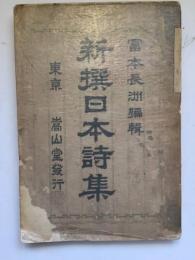 富本長洲編輯
新撰日本詩集
東京 嵩山堂發行